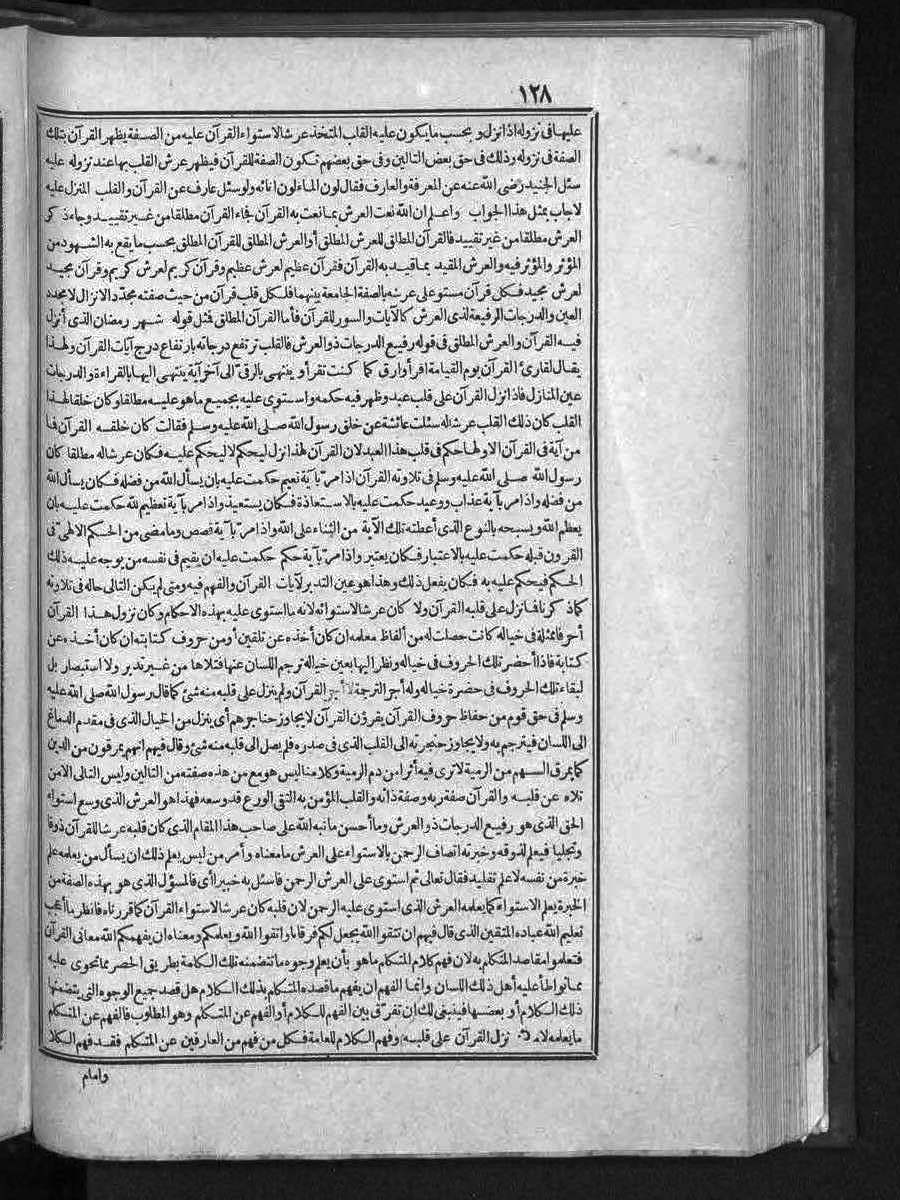 ١٢٨
عليها في نزوله اذا نزل و بحسب ما يكون عليه القلب المتخذ عرشا لاستواء القرآن عليه من الصفة يظهر القرآن بتلك
الصفة في نزوله وذلك في حق بعض التالين وفي حق بعضهم تكون الصفة للقرآن فيظهر عرش القلب بها عند نزوله عليه
سئل الجنيد رضى الله عنه عن المعرفة والعارف فقال لون الماء لون انائه ولو سئل عارف عن القرآن والقلب المنزل عليه
لاجاب بمثل هذا الجواب واعلم ان الله نعت العرش بما نعت به القرآن فجاء القرآن مطلقا من غير تقييد وجاء ذكر
العرش مطلقا من غير تقييد فالقرآن المطلق للعرش المطلق أو العرش المطلق للقرآن المطلق بحسب ما يقع به الشهود من
المؤثر والمؤثر فيه والعرش المقيد بما قيد به القرآن فقرآن عظيم لعرش عظيم وقرآن كريم لعرش كريم وقرآن مجيد
لعرش مجيد فكل قرآن مستو على عرشه بالصفة الجامعة بينهما فلكل قلب قرآن من حيث صفته مجدد الانزال لا مجدد
العين والدرجات الرفيعة لذى العرش كالآيات والسور للقرآن فأما القرآن المطلق فمثل قوله شهر رمضان الذى أنزل
فيه القرآن والعرش المطلق في قوله رفيع الدرجات ذو العرش فالقلب ترتفع درجاته بارتفاع درج آيات القرآن ولهذا
يقال لقارئ القرآن يوم القيامة اقرأ وارق كما كنت تقرأ وينتهى بالرقى الى آخر آية ينتهى اليها بالقراءة والدرجات
عين المنازل فاذا نزل القرآن على قلب عبد وظهر فيه حكمه واستوى عليه بجميع ما هو عليه مطلقا وكان خلقا لهذا
القلب كان ذلك القلب عرشا له سئلت عائشة عن خلق رسول الله صلى الله عليه وسلم فقالت كان خلقه القرآن فما
من آية في القرآن الا ولها حكم في قلب هذا العبد لان القرآن لهذا نزل ليحكم لا ليحكم عليه فكان عرشا له مطلقا كان
رسول الله صلى الله عليه وسلم في تلاوته القرآن اذا مر بآية نعيم حكمت عليه بان يسأل الله من فضله فكان يسأل الله
من فضله واذا مر بآية عذاب ووعيد حكمت عليه بالاستعاذة فكان يستعيذ واذا مر بآية تعظيم لله حكمت عليه بان
يعظم الله ويسبحه بالنوع الذى أعطته تلك الآية من الثناء على الله واذا مر بآية قصص وما مضى من الحكم الالهى في
القرون قبله حكمت عليه بالاعتبار فكان يعتبر واذا مر بآية حكم حكمت عليه ان يقيم في نفسه من يوجه عليه ذلك
الحكم فيحكم عليه به فكان يفعل ذلك وهذا هو عين التدبر لآيات القرآن والفهم فيه ومتى لم يكن التالى حاله في تلاوته
كما ذكرنا فما نزل على قلبه القرآن ولا كان عرشا لاستوائه لانه ما استوى عليه بهذه الاحكام وكان نزول هذا القرآن
أحرفا ممثلة في خياله كانت حصلت له من ألفاظ معلمه ان كان أخذه عن تلقين أو من حروف كتابته ان كان أخذه عن
كتابة فاذا أحضر تلك الحروف في خياله ونظر اليها بعين خياله ترجم اللسان عنها فتلاها من غير تدبر ولا استبصار بل
لبقاء تلك الحروف في حضرة خياله وله أجر الترجمة لا أجر القرآن ولم ينزل على قلبه منه شئ كما قال رسول الله صلى الله عليه
وسلم في حق قوم من حفاظ حروف القرآن يقرؤن القرآن لا يجاوز حناجرهم أى ينزل من الخيال الذى في مقدم الدماغ
الى اللسان فيترجم به ولا يجاوز حنجرته الى القلب الذى في صدره فلم يصل الى قلبه منه شئ وقال فيهم انهم يمرقون من الدين
كما يمرق السهم من الرمية لا ترى فيه أثرا من دم الرمية وكلامنا ليس هو مع من هذه صفته من التالين وليس التالى الا من
تلاه عن قلبه والقرآن صفة ربه وصفة ذاته والقلب المؤمن به التقى الورع قد وسعه فهذا هو العرش الذى وسع استواء
الحق الذى هو رفيع الدرجات ذو العرش وما أحسن ما نبه الله على صاحب هذا المقام الذى كان قلبه عرشا للقرآن ذوقا
وتجليا فيعلم لذوقه وخبرته اتصاف الرحمن بالاستواء على العرش ما معناه وأمر من ليس يعلم ذلك ان يسأل من يعلمه علم
خبرة من نفسه لا علم تقليد فقال تعالى ثم استوى على العرش الرحمن فاسئل به خبيرا أى فالمسؤل الذى هو بهذه الصفة من
الخبرة يعلم الاستواء كما يعلمه العرش الذى استوى عليه الرحمن لان قلبه كان عرشا لاستواء القرآن كما قررناه فانظر ما أعجب
تعليم الله عباده المتقين الذى قال فيهم ان تتقوا الله يجعل لكم فرقانا واتقوا الله ويعلمكم ومعناه ان يفهمكم الله معانى القرآن
فتعلموا مقاصد المتكلم به لان فهم كلام المتكلم ما هو بأن يعلم وجوه ما تتضمنه تلك الكلمة بطريق الحصر مما تحوى عليه
بما تواطأ عليه أهل ذلك اللسان وانما الفهم ان يفهم ما قصده المتكلم بذلك الكلام هل قصد جميع الوجوه التى يتضمنها
ذلك الكلام أو بعضها فينبغى لك ان تفرق بين الفهم للكلام أو الفهم عن المتكلم وهو المطلوب فالفهم عن المتكلم
ما يعلمه الا من نزل القرآن على قلبه وفهم الكلام للعامة فكل من فهم من العارفين عن المتكلم فقد فهم الكلا
وامام